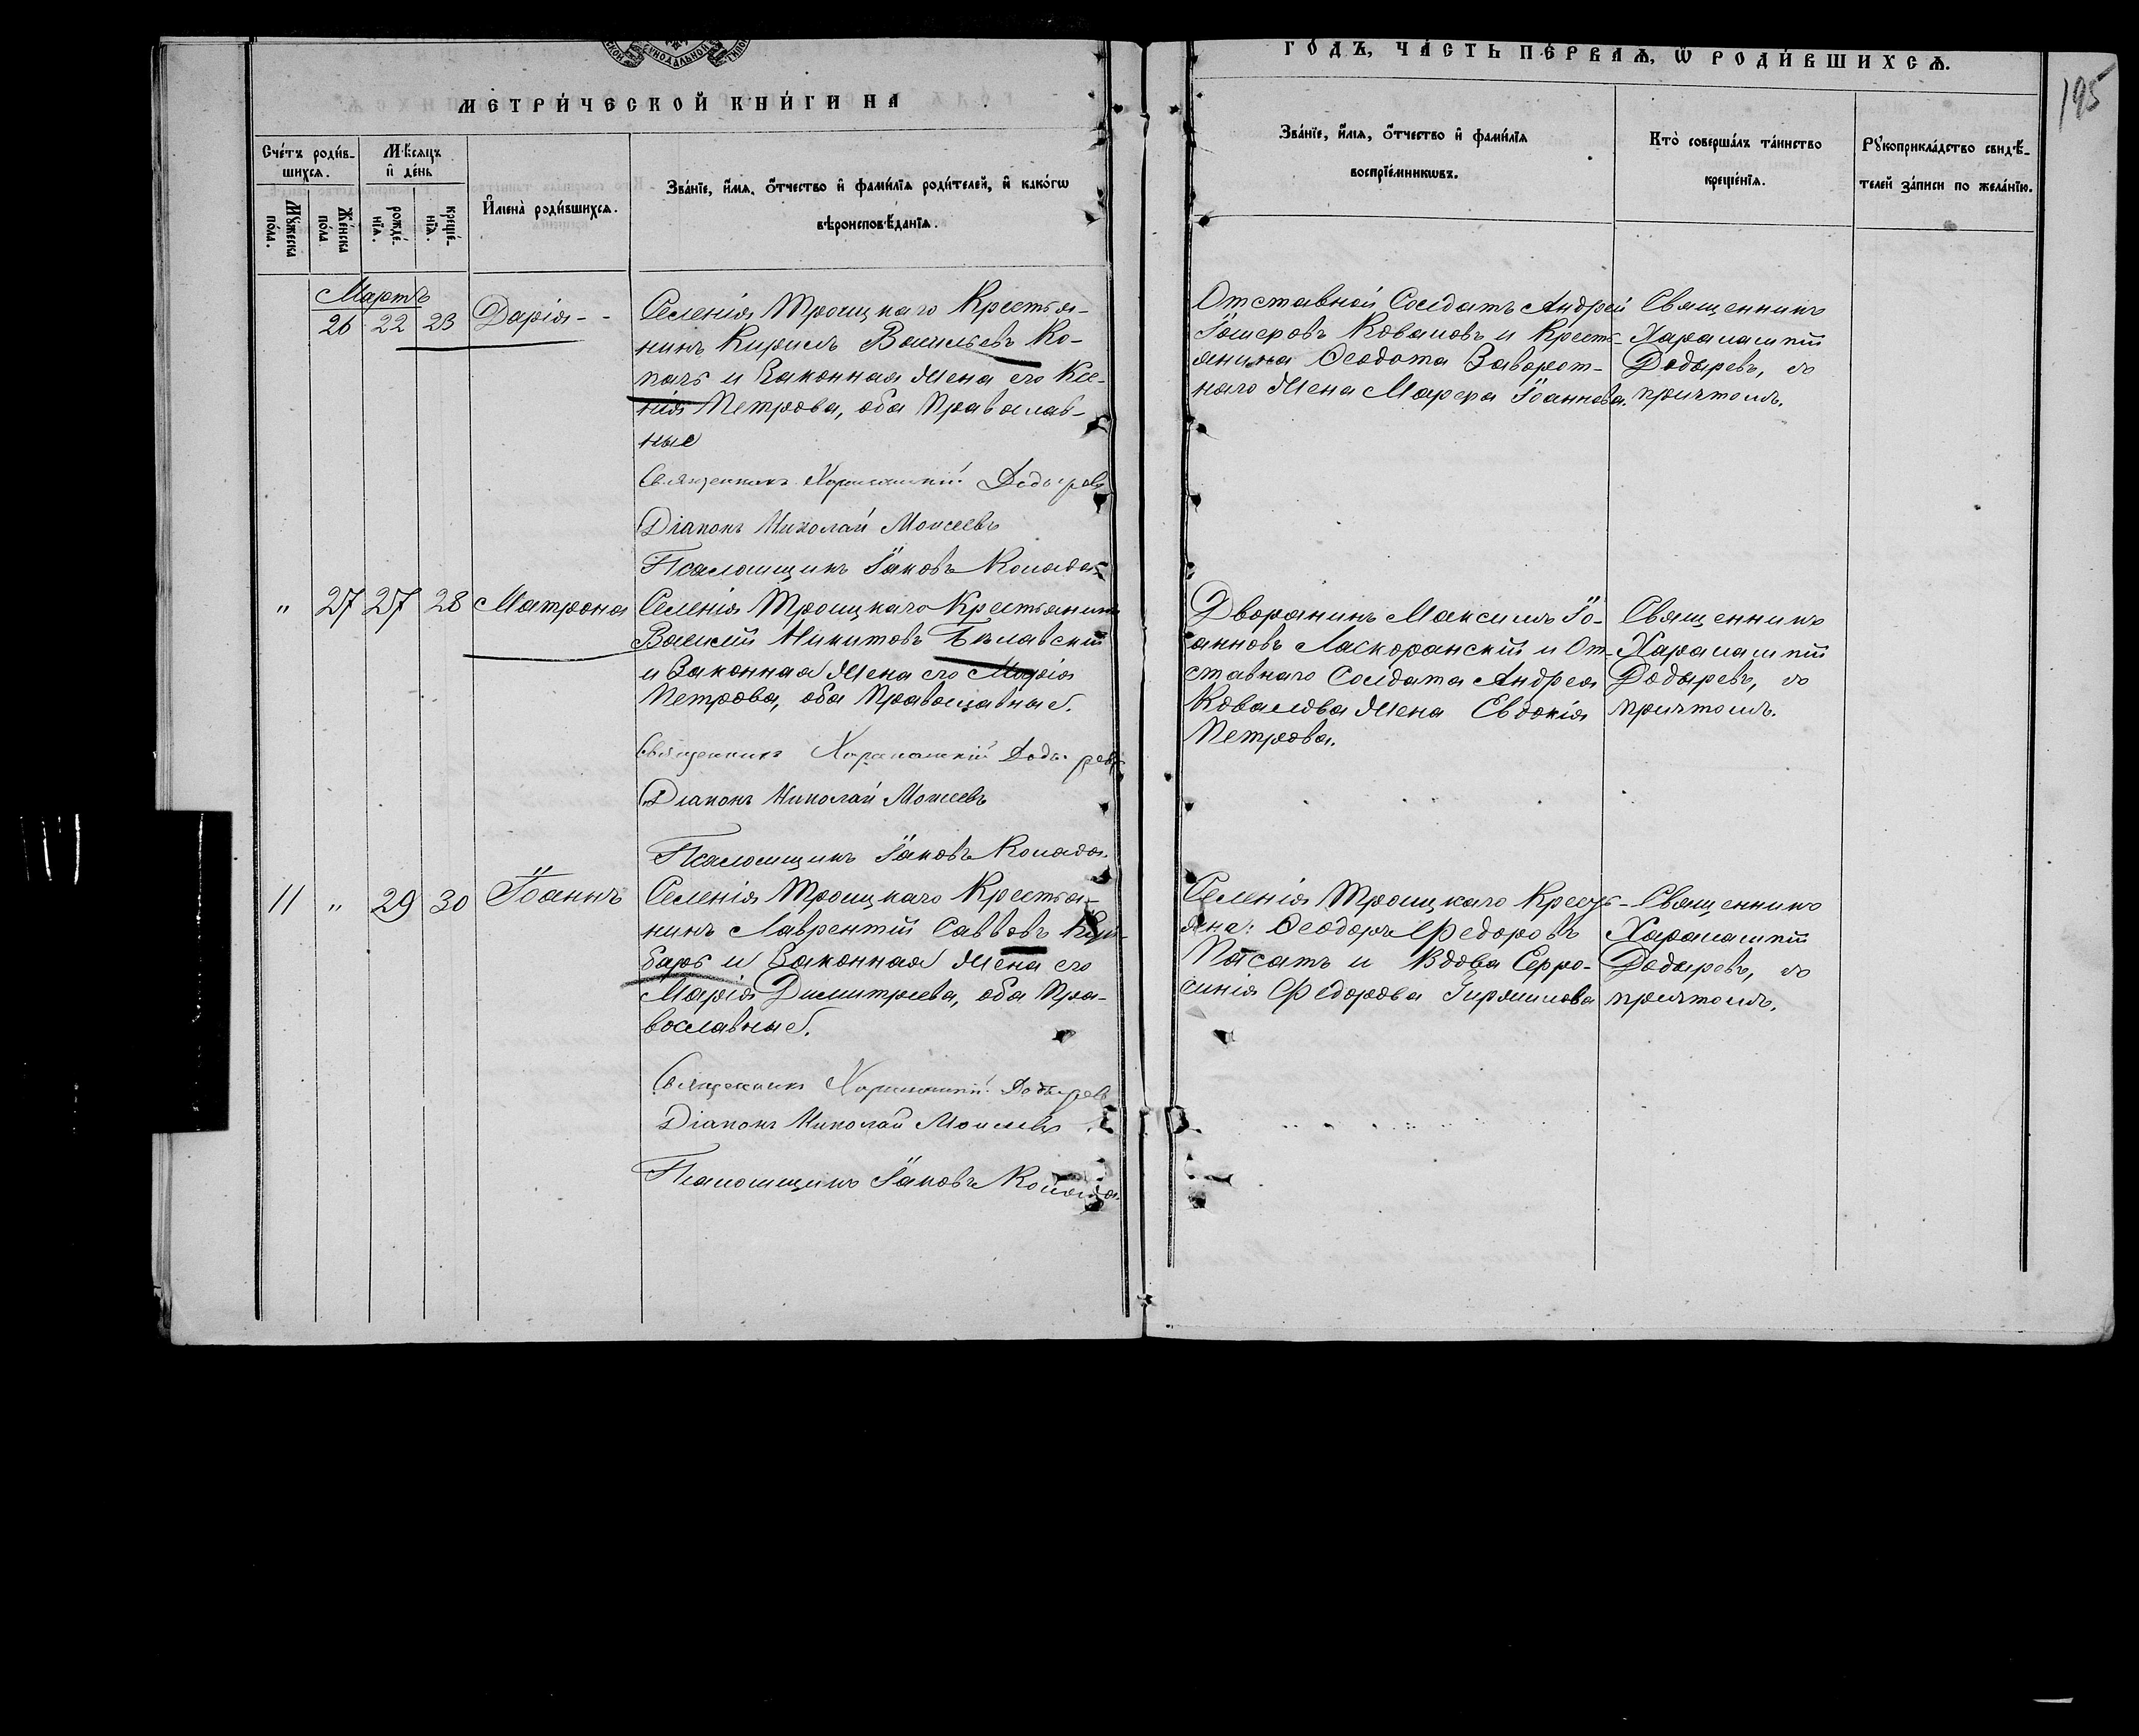 МЕТРИ́ЧЕСКОЙ КНИ́ГИ НА
ГОДЪ, ЧА́СТЬ ПЕ́РВАѦ, Ѡ҆ РОДИ́ВШИХСѦ.
195
Сче́тъ роди́в-
шихсѧ.
Мꙋ́жеска
по́ла.
Же́нска
по́ла.
Мѣ́сѧцъ
и҆ де́нь
рожде́-
нїѧ.
креще́-
нїѧ.
И҆мена̀ роди́вшихсѧ.
Зва́нїе, и҆́мѧ, ѻ҆́тчество и҆ фами́лїѧ роди́телей, и҆ како́гѡ
вѣроисповѣ́данїѧ.
Зва́нїе, и҆́мѧ, ѻ҆́тчество и҆ фами́лїѧ
воспрїе́мникѡвъ.
Кто̀ соверша́лъ та́инство
креще́нїѧ.
Рꙋкоприкла́дство свидѣ́-
телей за́писи по жела́нїю.
Мартъ
26 22 23 Дарія - -
Селенія Троицкаго Крестья-
нинъ Кирилъ Васильевъ Ко-
пачъ и Законная Жена его Ксе-
нія Петрова, оба Православ-
ные
Священникъ Харлампій Додыревъ
Діаконъ Николай Моисеевъ
Псаломщикъ Іаковъ
Отставной Солдатъ Андрей
Коваловъ и Кресть-
янина Ѳеодота Заворот-
наго Жена Марѳа Іоаннова.
Священникъ
Харлампій
Додыревъ, съ
причтомъ.
" 27 27 28 Матрона
Селенія Троицкаго Крестьянинъ
Василій Никитовъ Бѣлавскій
и Законная Жена его Марія
Петрова, оба Православные.
Священникъ Харлампій Додыревъ
Діаконъ Николай Моисеевъ
Псаломщикъ Іаковъ
Дворянинъ Максимъ Іо-
анновъ Ласкоранскій и От-
ставнаго Солдата Андрея
Ковалова Жена Евдокія
Петрова.
Священникъ
Харлампій
Додыревъ, съ
причтомъ.
11 " 29 30 Іоаннъ
Селенія Троицкаго Крестья-
нинъ Лаврентій Савовъ
баръ и Законная Жена его
Марія Димитріева, оба Пра-
вославные.
Священникъ Харлампій Додыревъ
Діаконъ Николай Моисеевъ
Псаломщикъ Іаковъ
Селенія Троицкаго Кресть-
яне: Ѳеодоръ Федоровъ
Пасатъ и Вдова Ефро-
синія Федорова
Священникъ
Харлампій
Додыревъ, съ
причтомъ.